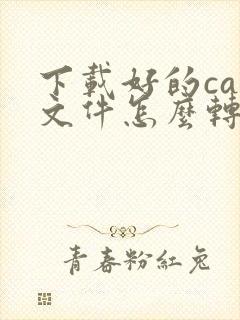 下載好的ca
文件怎麼轉
青春粉紅兔